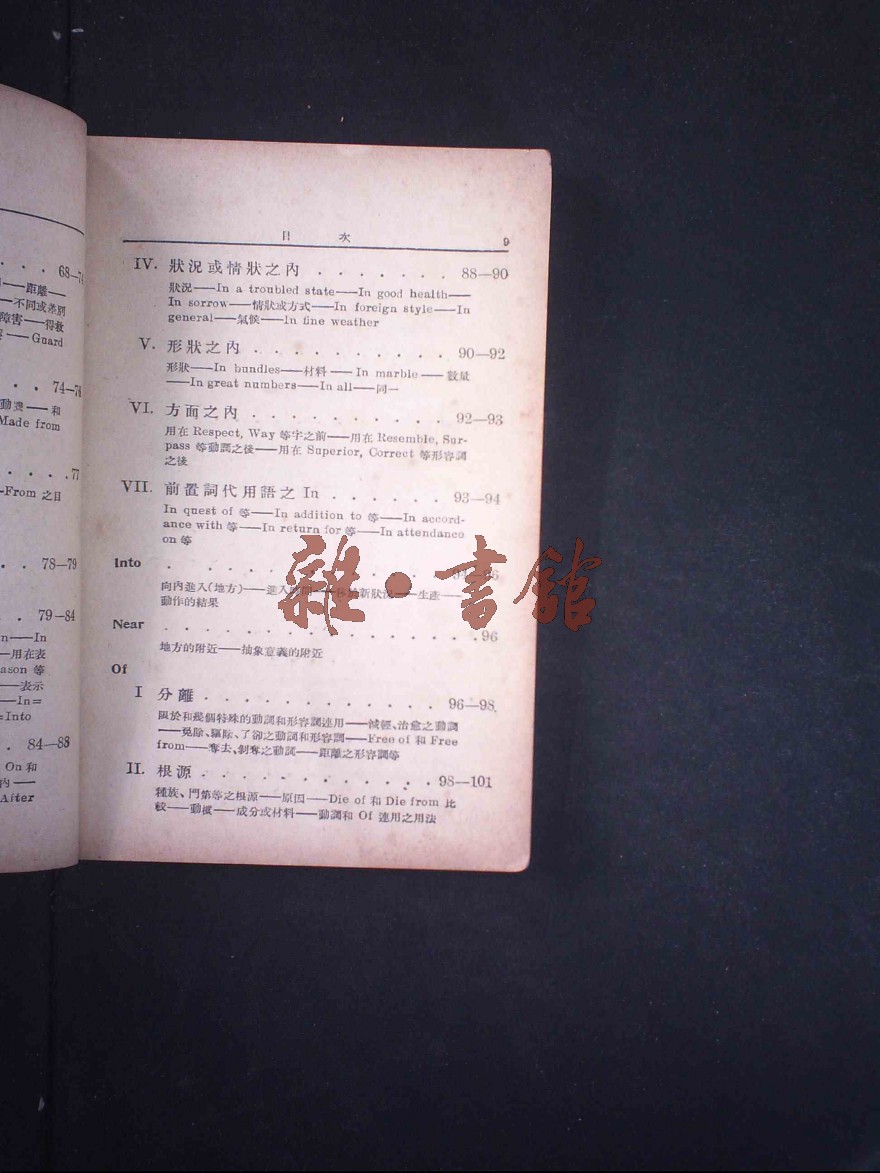 68—7
距離—
—不同或差別
障害——得救
——Guard
74—7
動畫——和
Made from
77
-From 之目
78—79
79—84
n——In
—用在表
ason 等
—表示
—In=
=Into
84—88
On 和
內——
After
目 次 9
IV. 狀況或情狀之內 . . . . . . . 88—90
狀況——In a troubled state——In good health——
In sorrow——情狀或方式——In foreign style——In
general——氣候——In fine weather
V. 形狀之內 . . . . . . . . . . 90—92
形狀——In bundles——材料——In marble——數量
——In great numbers——In all——同一
VI. 方面之內 . . . . . . . . . . 92—93
用在 Respect, Way 等字之前——用在 Resemble, Sur-
pass 等動詞之後——用在 Superior, Correct 等形容詞
之後
VII. 前置詞代用語之 In . . . . . . 93—94
In quest of 等——In addition to 等——In accord-
ance with 等——In return for 等——In attendance
on 等
Into
向內進入(地方)——進入 新狀況——生產——
動作的結果
Near . . . . . . . . . . . . . . . 96
地方的附近——抽象意義的附近
Of
I 分離 . . . . . . . . . . . . 96—98
限於和幾個特殊的動詞和形容詞連用——減輕、治愈之動詞
——免除、驅除、了卻之動詞和形容詞——Free of 和 Free
from——奪去、剝奪之動詞——距離之形容詞等
II. 根源 . . . . . . . . . . . . 98—101
種族、門第等之根源——原因——Die of 和 Die from 比
較——動機——成分或材料——動詞和 Of 連用之用法
雜·書館